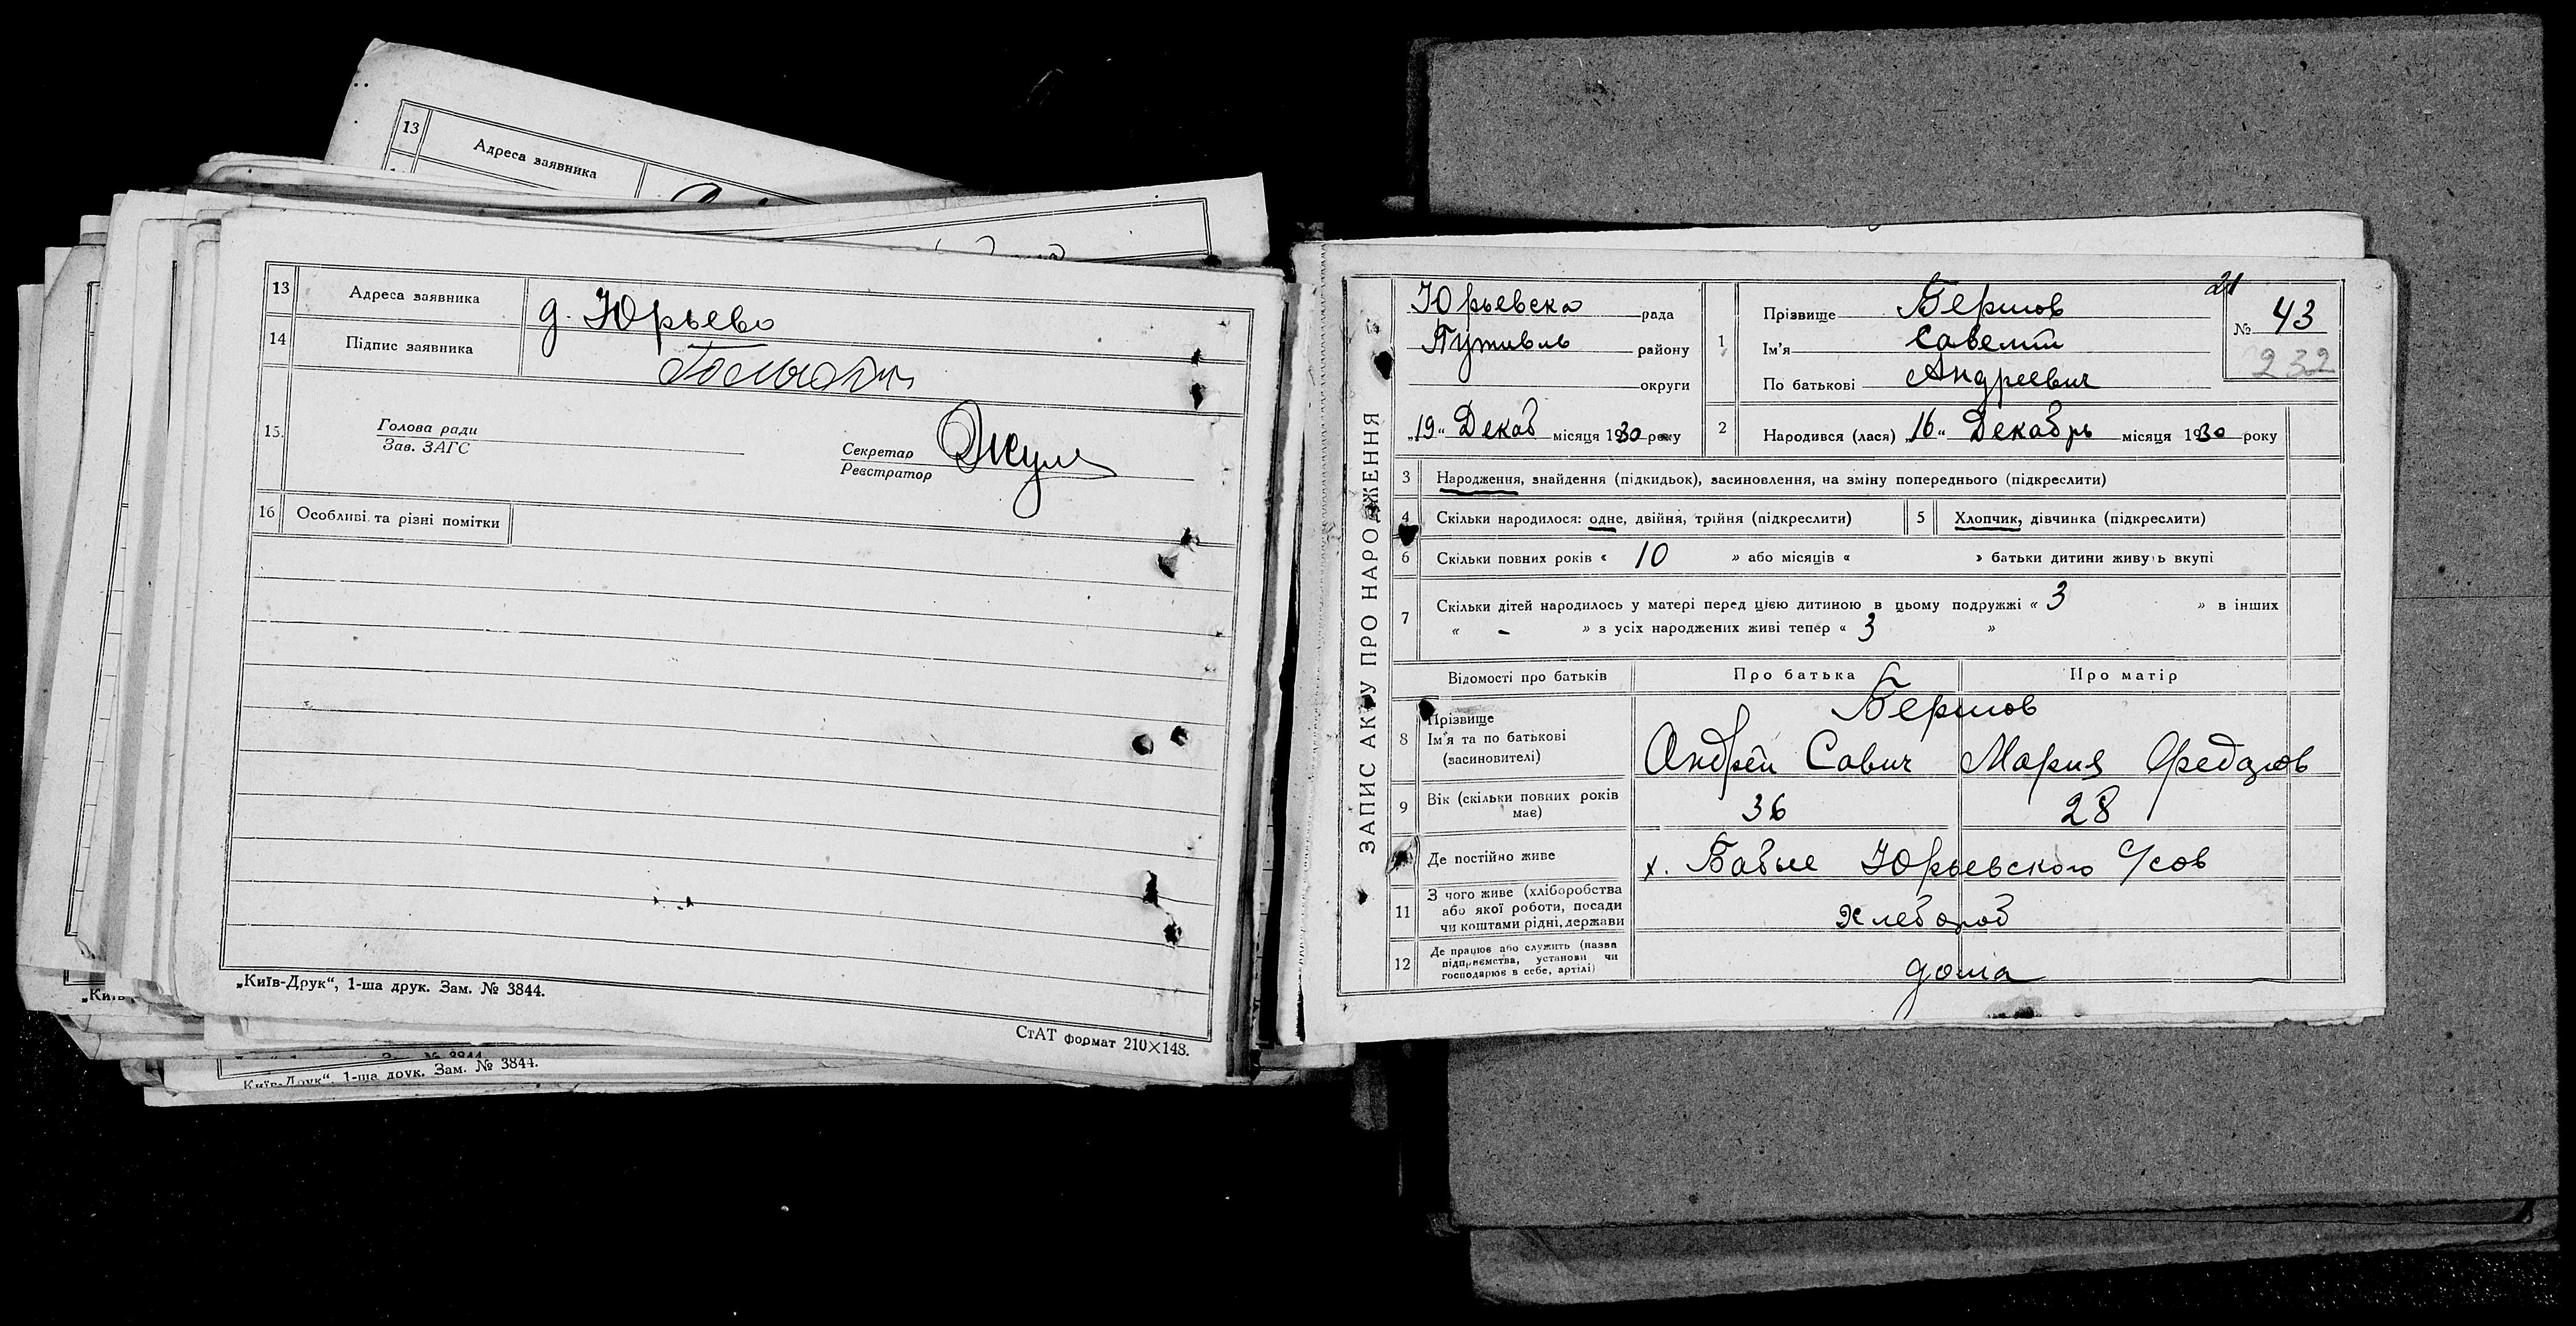 13 Адреса заявника
13 Адреса заявника д. Юрьево
14 Підпис заявника
15. Голова ради
Зав. ЗАГС
Секретар
Реєстратор
16 Особливі та різні помітки
„Київ-Друк“, 1-ша друк. Зам. № 3844.
СтАТ формат 210×148.
Київ-Друк“, 1-ша друк. Зам. № 3844.
ЗАПИС АКТУ ПРО НАРОДЖЕННЯ
Юрьевска рада
Путивль району
округи
„19“ Декаб місяця 1930 року
1 Прізвище Бершов
Ім'я Савелий
По батькові Андреевич
21
№ 43
232
2 Народився (лася) „16“ Декабрь місяця 1930 року
3 Народження, знайдення (підкидьок), засиновлення, на зміну попереднього (підкреслити)
4 Скільки народилося: одне, двійня, трійня (підкреслити) 5 Хлопчик, дівчинка (підкреслити)
6 Скільки повних років « 10 » або місяців « » батьки дитини живуть вкупі
7 Скільки дітей народилось у матері перед цією дитиною в цьому подружжі « 3 » в інших
« - » з усіх народжених живі тепер « 3 »
Відомості про батьків Про батька Про матір
8 Прізвище
Ім'я та по батькові
(засновителі)
Бершов
Андрей Савич Мария
9 Вік (скільки повних років має) 36 28
Де постійно живе х. Бабье Юрьевского с/сов
11 З чого живе (хліборобства
або якої роботи, посади
чи коштами рідні, держави
Хлебороб
12 Де працює або служить (назва
підприємства, установи чи
господарює в себе, артілі)
дома